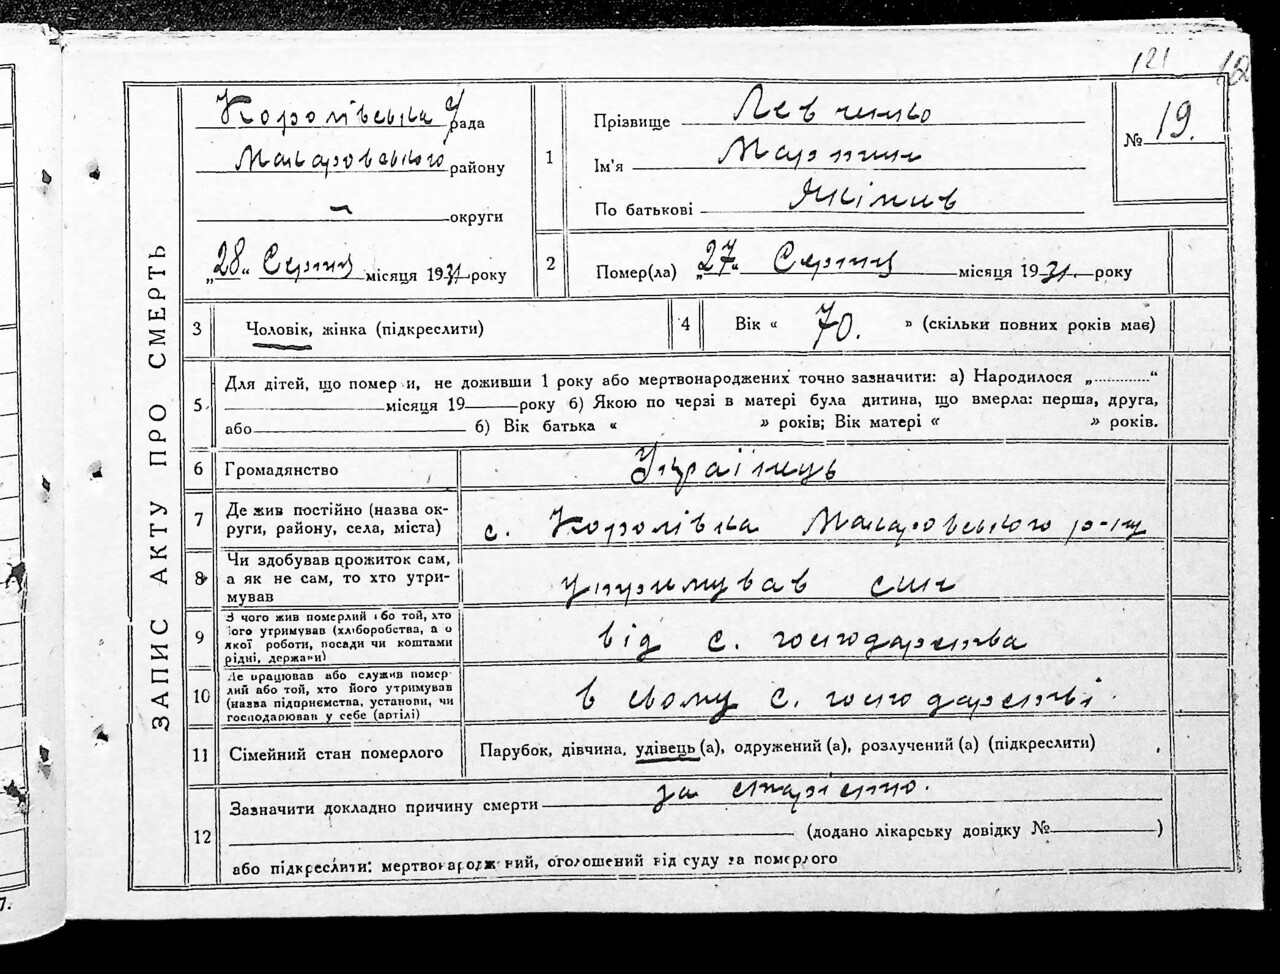 121
ЗАПИС АКТУ ПРО СМЕРТЬ
Королівська рада
Макаровського району
— округи
„28“ Серпня місяця 1931 року
1
Прізвище Левченко
Ім'я Мартин
По батькові Якимів
№ 19.
2
Помер(ла) „27“ Серпня місяця 1931 року
3 Чоловік, жінка (підкреслити)
4 Вік « 70. » (скільки повних років має)
5
Для дітей, що померли, не доживши 1 року або мертвонароджених точно зазначити: а) Народилося „............“
місяця 19 року б) Якою по черзі в матері була дитина, що вмерла: перша, друга,
або б) Вік батька « » років; Вік матері « » років.
6 Громадянство Українець
7
Де жив постійно (назва ок-
руги, району, села, міста)
с. Королівка Макаровського р-ну
8
Чи здобував прожиток сам,
а як не сам, то хто утри-
мував
утримував син
9
З чого жив померлий або той, хто
його утримував (хліборобства, а о
якої роботи, посади чи коштами
рідні, держави)
від с. господарства
10
Де працював або служив помер
лий або той, хто його утримував
(назва підприємства, установи, чи
господарював у себе (артілі)
в свому с. господарстві.
11 Сімейний стан померлого Парубок, дівчина, удівець (а), одружений (а), розлучений (а) (підкреслити)
12
Зазначити докладно причину смерти за старістю.
(додано лікарську довідку № )
або підкреслити: мертвонароджений, оголошений від суду за померлого
7.